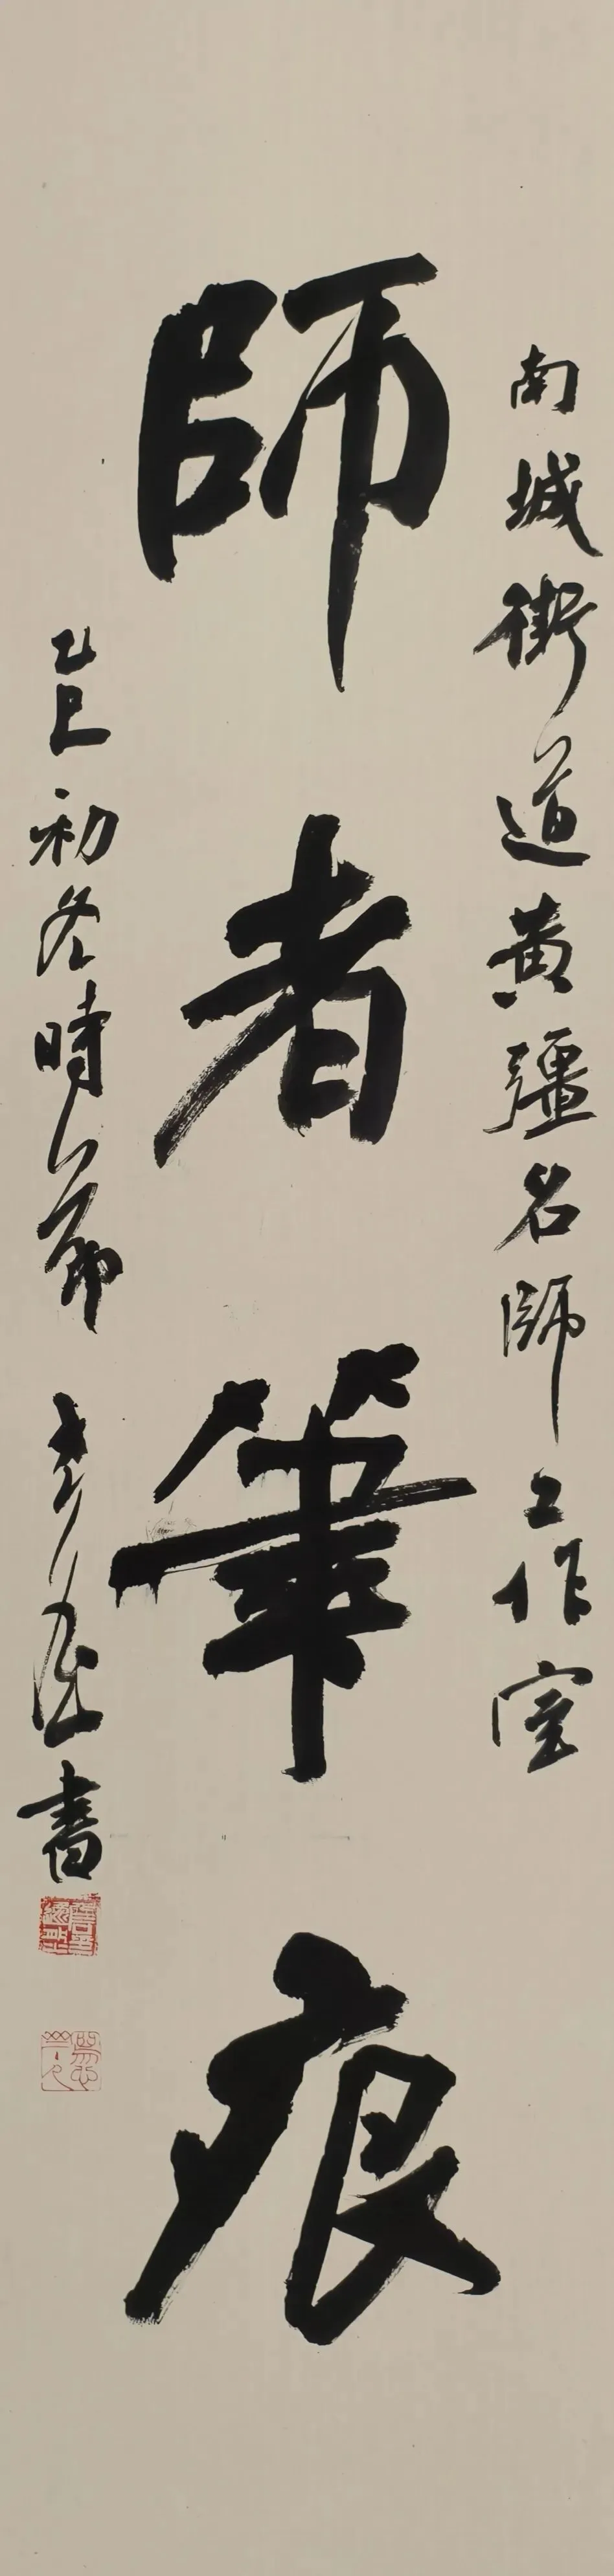 南城街道黄疆名師工作室
師者筆痕
乙巳初冬時節
書